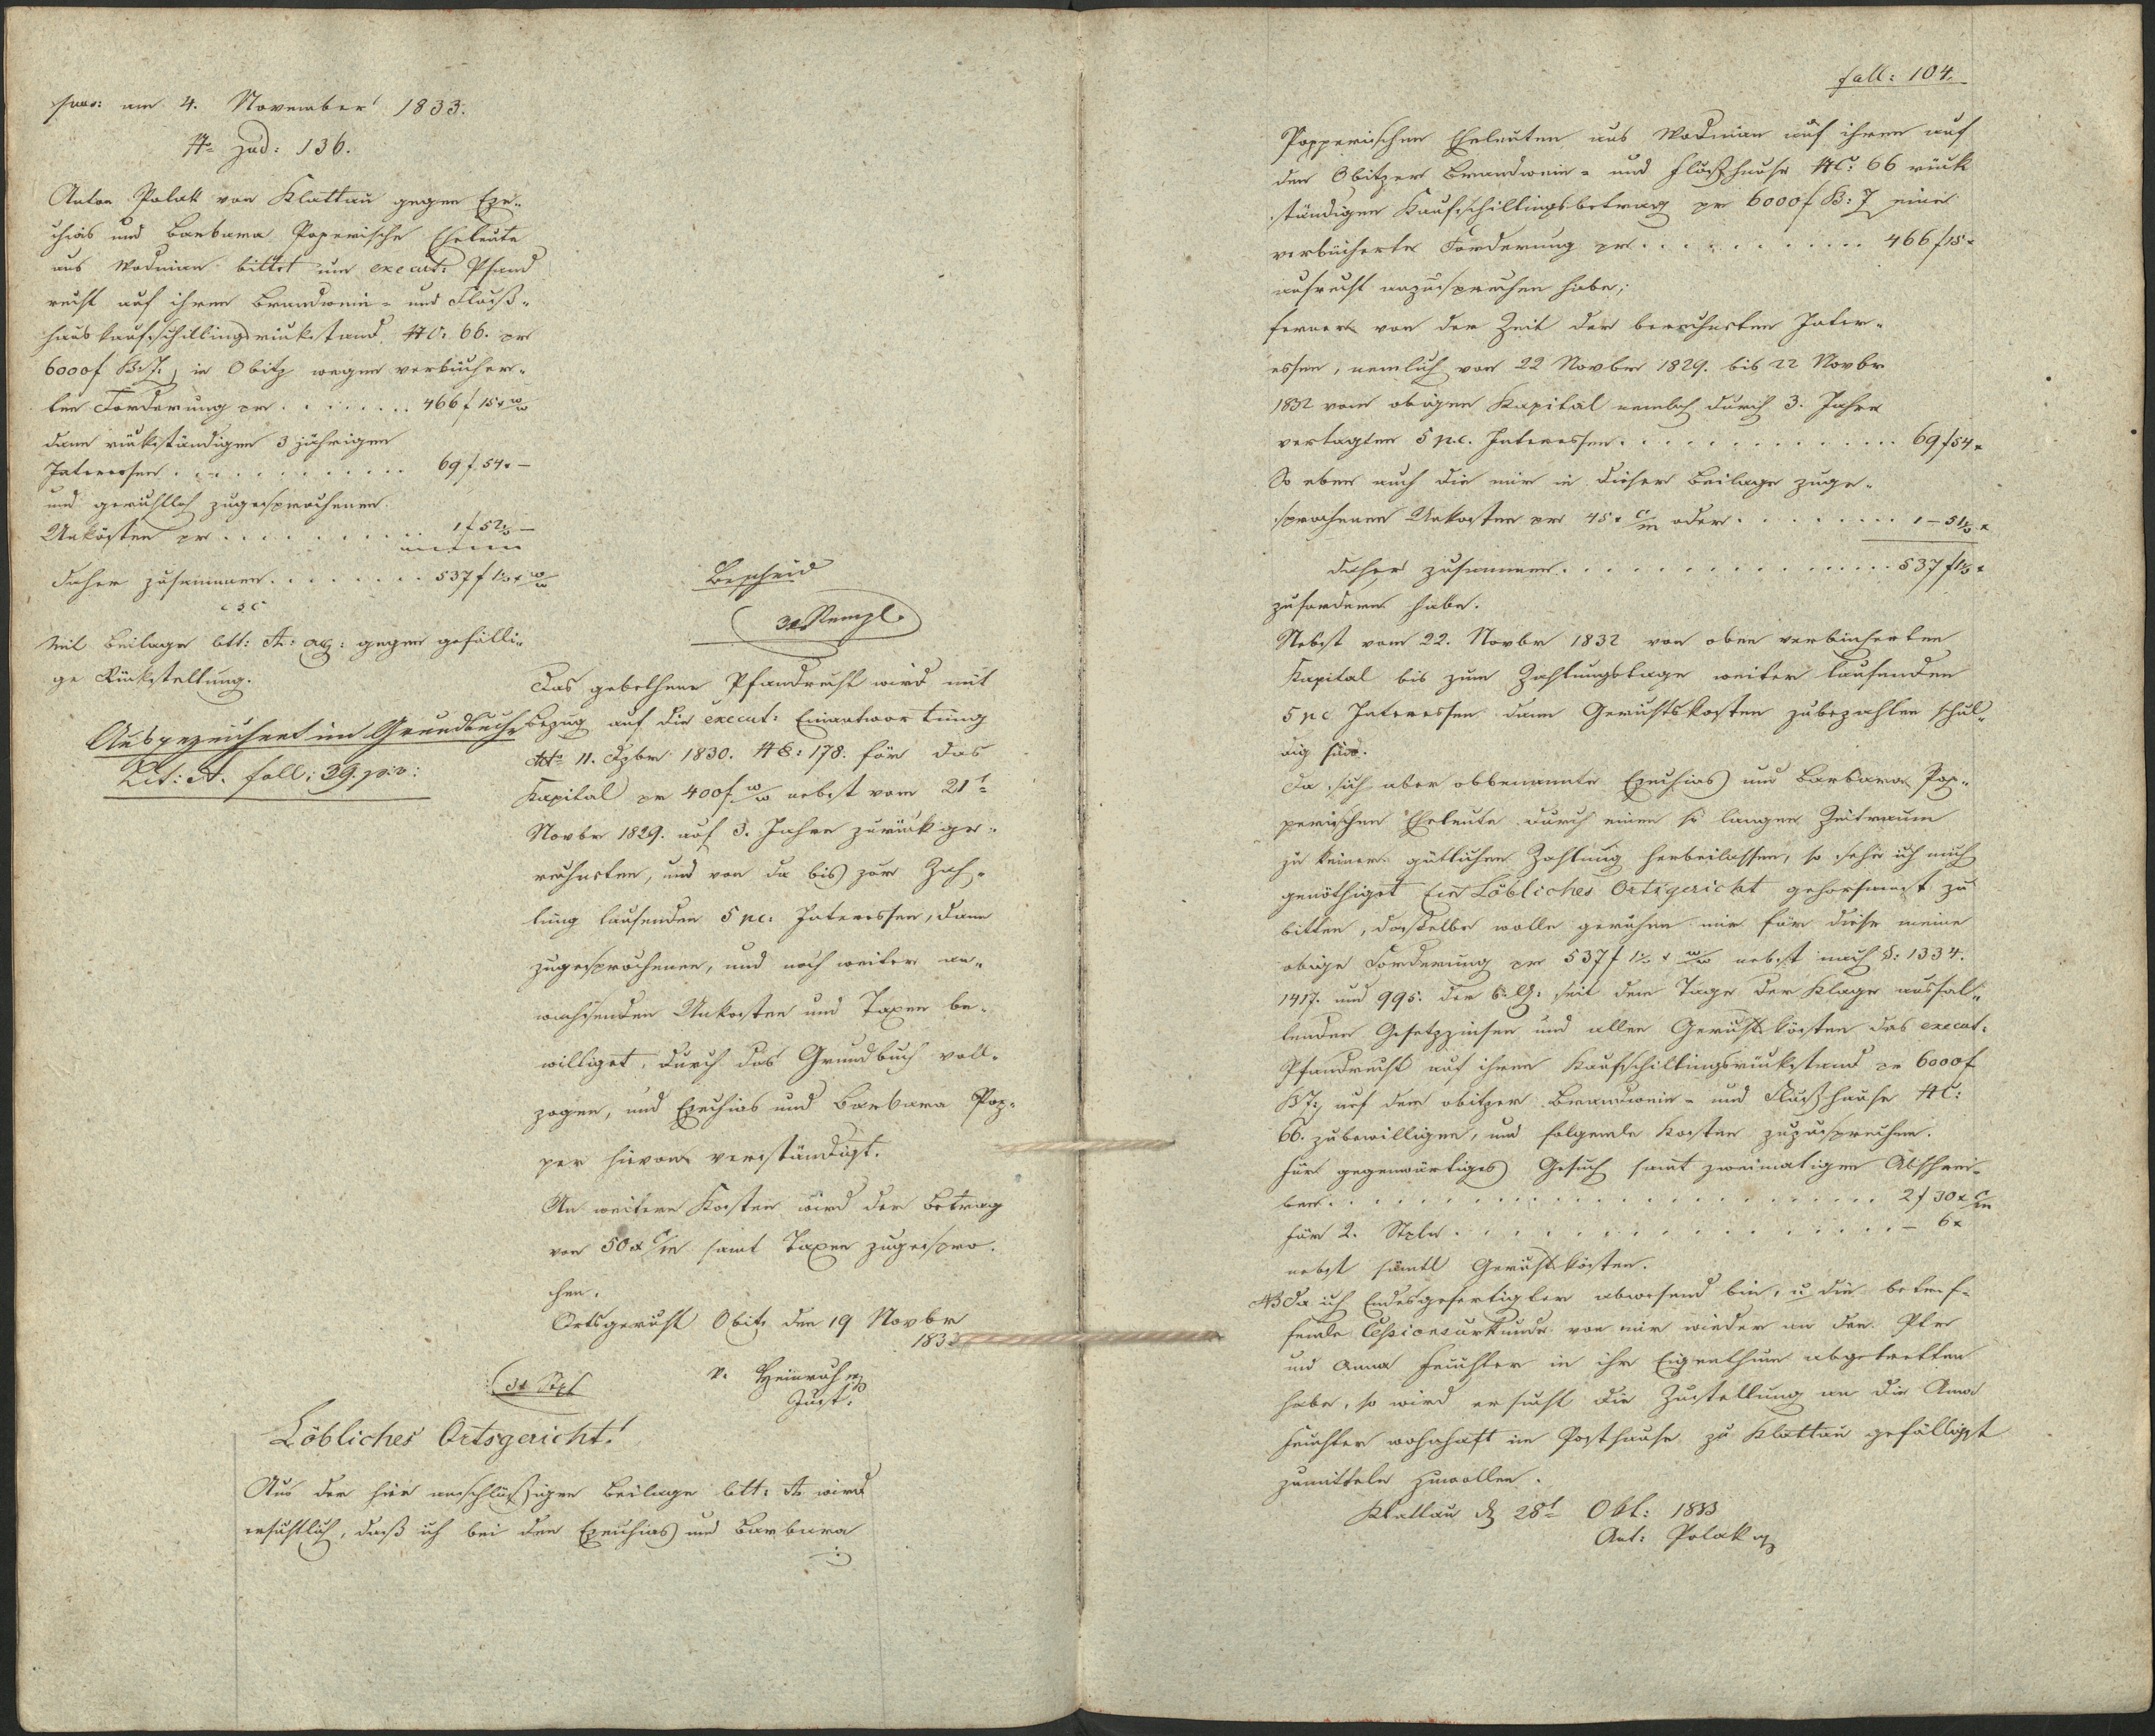 praes: am 4. November 1833.
N: Jud: 136.
Anton Polak von Klattau gegen Eze„
chias und Barbara Poperische Eheleute
aus Wodnian bittet um execut: Pfand
recht auf ihren Brandwein- und Fluß-
hauskaufschillingsrückstand NC: 66. pr
6000f in Obitz wegen verbücher-
ten Forderung pr . . . . . . . 466 f 15 x
dann rückständigen 3 jährigen
Interessen . . . . . . . . . . 69 f. 54 x
und gerichtlich zugesprochenen
Unkösten pr . . . . . . . . . 1 f 52
daher zusammen . . . . . . . 537 f
csc
Mit Beilage Litt: A: gegen gefälli„
ge Rückstellung.
Ausgezeichnet im Grundbuche
Lit: A. foll: 39. p.v:
Bescheid
3x Stempl.
Das gebethene Pfandrecht wird mit
Bezug auf die execut: Einantwortung
dto 11. Dzber 1830. NE: 178. für das
Kapital pr 400f nebst vom 21t
Novbr 1829. auf 3. Jahre zurück ge-
rechneten, und von da bis zur Zah-
lung laufenden 5 pc: Interessen, dann
zugesprochenen, und noch weiter an-
wachsenden Unkosten und Taxen be-
williget, durch das Grundbuch voll-
zogen, und Ezechias und Barbara Pop-
per hievon verständigt.
An weitern Kosten wird der Betrag
von 50 x C/m samt Taxen zugespro-
chen.
Ortsgericht Obitz den 19 Novbr
1833
3x Stpl
V. Heinrich
Just.
Löbliches Ortsgericht!
Aus der hier anschlüßigen Beilage Litt: A wird
ersichtlich, daß ich bei den Ezechias und Barbara
foll: 104.
Popperischen Eheleuten aus Wodnian auf ihren auf
den Obitzer Brandwein- und Flußhause NC: 66 rück
ständigen Kaufschillingsbetrag pr 6000f eine
verbücherte Forderung pr . . . . . . . . . . . 466 f 15 x
aufrecht anzusprechen habe;
ferners von der Zeit der berechneten Inter-
essen, nemlich von 22 Novber 1829. bis 22 Novbr
1832 vom obigen Kapital nemlich durch 3. Jahre
vertagten 5 p.c. Interessen . . . . . . . . . . . . . 69 f 54 x
So eben auch die mir in dieser Beilage zuge-
sprochenen Unkosten pr 45 x C/m oder . . . . . . . .
daher zusammen . . . . . . . . . . . . . . . . 537 f
zufordern habe.
Nebst vom 22. Novbr 1832 von oben verbücherten
Kapital bis zum Zahlungstage weiter laufenden
5 pc Interessen dann Gerichtskosten zubezahlen schul-
dig sind.
Da sich aber obbenannte Ezechias und Barbara Pop„
perischen Eheleute durch einen so langen Zeitraum
zu keiner gütlichen Zahlung herbeilassen, so sehe ich mich
genöthiget Ein Löbliches Ortsgericht gehorsamst zu
bitten, dasselbe wolle geruhen mir für diese meine
obige Forderung pr 537 f nebst nach §: 1334.
1417. und 995. des b. G: seit dem Tage der Klage ausfal„
lenden Gesetzzinsen und allen Gerichtskösten das execut.
Pfandrecht auf ihren Kaufschillingsrückstand pr 6000f
auf dem obitzer Brandwein- und Flußhause NC:
66. zubewilligen, und folgende Kosten zuzusprechen.
Für gegenwärtiges Gesuch samt zweimaligen Abschrei-
ben . . . . . . . . . . . . . . . . . . . . . . . . 2 f 30 x C/m
für 2. Stpln . . . . . . . . . . . . . . . . . . . – 6 x
nebst sämtl Gerichtskösten.
NB Da ich Endesgefertigter abwesend bin, u die betref-
fende Cessionsurkunde von mir wieder an den
und Anna Feuchter in ihr Eigenthum abgetretten
habe, so wird ersucht die Zustellung an die Anna
Feuchter wohnhaft im Posthause zu Klattau gefälligst
zumitteln zuwollen.
Klattau d 28t Okt: 1833
Ant: Polak